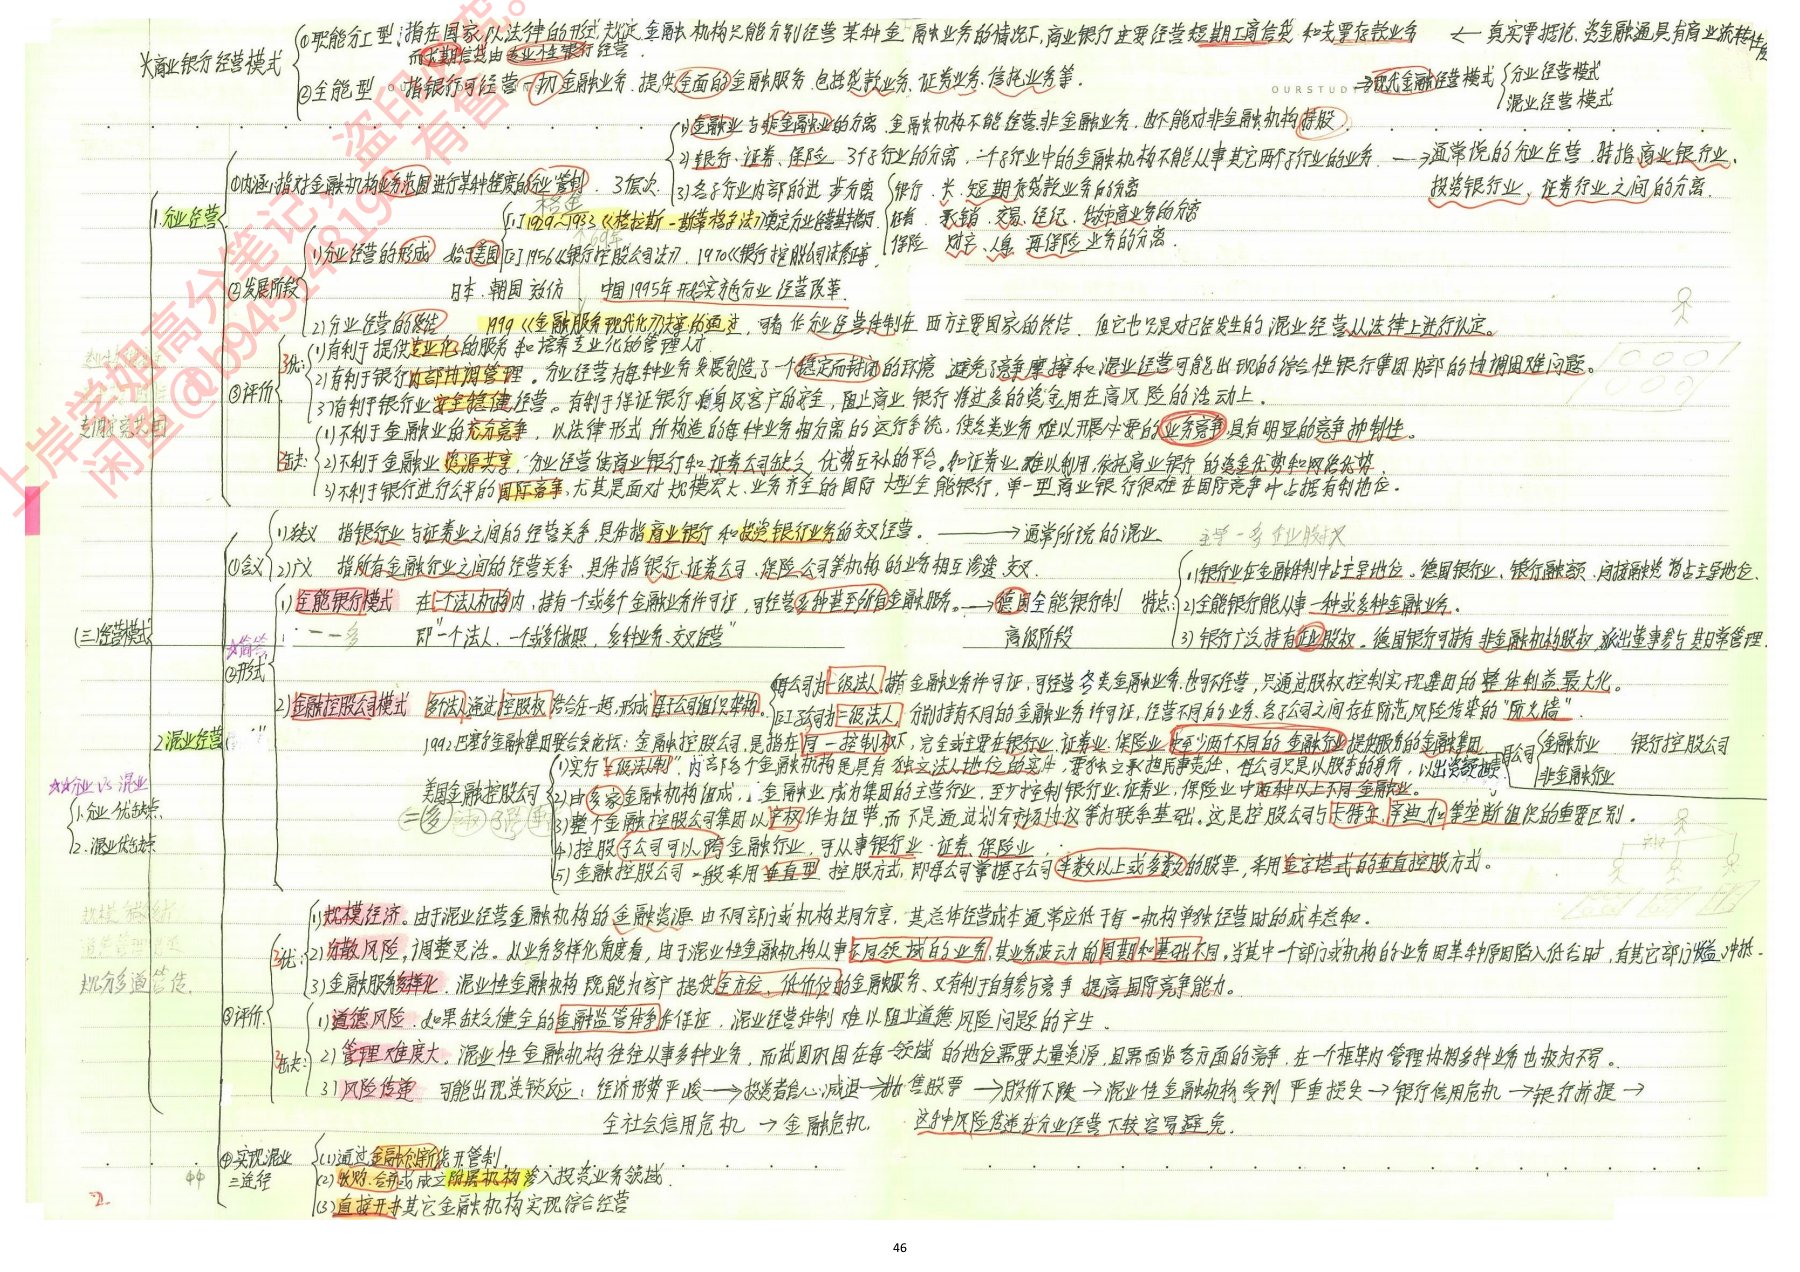 ※商业银行经营模式
①职能分工型：指在国家以法律的形式规定金融机构只能分别经营某种金融业务的情况下，商业银行主要经营短期工商信贷和支票存款业务 ← 真实票据论、资金融通具有商业流转性质
而长期信贷由专业性银行经营.
②全能型 指银行可经营一切金融业务、提供全面的金融服务 包括贷款业务、证券业务、信托业务等. →现代金融经营模式 分业经营模式
混业经营模式
OURSTUD
(三)经营模式
1.分业经营
①内涵：指对金融机构业务范围进行某种程度的分业管制. 3层次
1)金融业与非金融业的分离 金融机构不能经营非金融业务、也不能对非金融机构持股.
2)银行、证券、保险 3个子行业的分离，一个子行业中的金融机构不能从事其它两个子行业的业务. →通常说的分业经营，特指商业银行业、
投资银行业、证券行业之间的分离.
3)各子行业内部的进一步分离
银行 长、短期存贷款业务的分离
证券 承销、交易、经纪、做市商业务的分离
保险 财产、人身、再保险业务的分离.
②发展阶段
1)分业经营的形成 始于美国
[1]1929~1933《格拉斯-斯蒂格尔法》奠定分业经营基本格局
格鱼
[2]1956《银行控股公司法》、1970《银行控股公司法修正案》
日本、韩国 效仿 中国1995年开始实施分业经营改革.
2)分业经营的终结 1999《金融服务现代化》法案的通过，可看作分业经营体制在西方主要国家的终结 但它也只是对已经发生的混业经营从法律上进行认定。
③评价
优：
1)有利于提供专业化的服务和培养专业化的管理人才
2)有利于银行内部协调管理。分业经营为每种业务发展创造了一个稳定而封闭的环境 避免了竞争摩擦和混业经营可能出现的综合性银行集团内部的协调困难问题。
3)有利于银行业安全稳健经营。有利于保证银行自身及客户的安全，阻止商业银行将过多的资金用在高风险的活动上.
缺失：
1)不利于金融业的充分竞争，以法律形式所构造的每种业务相分离的运行系统，使各类业务难以开展必要的业务竞争具有明显的竞争抑制性。
2)不利于金融业资源共享 分业经营使商业银行和证券公司缺乏优势互补的平台。如证券业难以利用、依托商业银行的资金优势和网络优势.
3)不利于银行进行公平的国际竞争、尤其是面对规模宏大、业务齐全的国际大型全能银行，单一型商业银行很难在国际竞争中占据有利地位.
2.混业经营
①含义
1)狭义 指银行业与证券业之间的经营关系 具体指商业银行和投资银行业务的交叉经营. →通常所说的混业
2)广义 指所有金融行业之间的经营关系，具体指银行、证券公司、保险公司等机构的业务相互渗透、交叉.
☆简答
②形式
1)全能银行模式 在一个法人机构内，拥有一个或多个金融业务许可证，可经营多种甚至所有金融服务。→德国全能银行制 特点：
一一多 即"一个法人、一个或多个执照、多种业务、交叉经营" 高级阶段
1)银行业在金融体制中占主导地位。德国银行业、银行融资额、间接融资 皆占主导地位.
2)全能银行能从事一种或多种金融业务。
3)银行广泛持有企业股权。德国银行可持有非金融机构股权 派出董事参与其日常管理.
2)金融控股公司模式 多个法人通过控股权结合在一起，形成母子公司组织架构.
母公司为一级法人，拥有金融业务许可证，可经营各类金融业务、也可不经营，只通过股权控制实现集团的整体利益最大化。
[2]子公司为二级法人，分别持有不同的金融业务许可证，经营不同的业务、各子公司之间存在防范风险传染的"防火墙".
1992巴塞尔金融集团联合会论坛：金融控股公司是指在同一控制权下，完全或主要在银行业、证券业、保险业 中至少两个不同的金融行业提供服务的金融集团
母公司 金融行业 银行控股公司
非金融行业
美国金融控股公司
1)实行"二级法人制"，内部各个金融机构是具有独立法人地位的实体，要独立承担民事责任，母公司只是以股东的身份，以出资额担责.
2)由多家金融机构组成，金融业成为集团的主营行业，至少控制银行业、证券业、保险业中两种以上不同金融业。
3)整个金融控股公司集团以产权作为纽带而不是通过划分市场协议等为联系基础。这是控股公司与卡特尔、辛迪加等垄断组织的重要区别.
4)控股子公司可以跨金融行业，可从事银行业、证券、保险业.
5)金融控股公司一般采用垂直型控股方式，即母公司掌握子公司半数以上或多数的股票，采用金字塔式的垂直控股方式。
☆☆分业 vs 混业
1.分业优缺点
2.混业优缺点
③评价
优：
1)规模经济。由于混业经营金融机构的金融资源由不同部门或机构共同分享，其总体经营成本通常应低于每一机构单独经营时的成本总和.
2)分散风险，调整灵活。从业务多样化角度看，由于混业性金融机构从事不同领域的业务，其业务波动的周期和基础不同，当其中一个部门或机构的业务因某种原因陷入低谷时，有其它部门收益冲抵.
3)金融服务多样化 混业性金融机构既能为客户提供全方位、低价位的金融服务、又有利于自身参与竞争 提高国际竞争能力。
规分多道管传
缺失：
1)道德风险 如果缺乏健全的金融监管体系作保证，混业经营体制难以阻止道德风险问题的产生.
2)管理难度大。混业性金融机构往往从事多种业务，而试图巩固在每一领域的地位需要大量资源，且需面临各方面的竞争，在一个框架内管理协调多种业务也极为不易。
3)风险传递 可能出现连锁反应：经济形势严峻→投资者信心减退→抛售股票→股价下跌→混业性金融机构受到严重损失→银行信用危机→银行挤提→
全社会信用危机→金融危机. 这种风险传递在分业经营下较容易避免.
④实现混业三途径
(1)通过金融创新绕开管制
(2)收购、合并或成立附属机构渗入投资业务领域.
(3)直接开办其它金融机构实现综合经营
2.
上岸学姐高分笔记，盗印必究。
闲鱼@b945148196有售
46